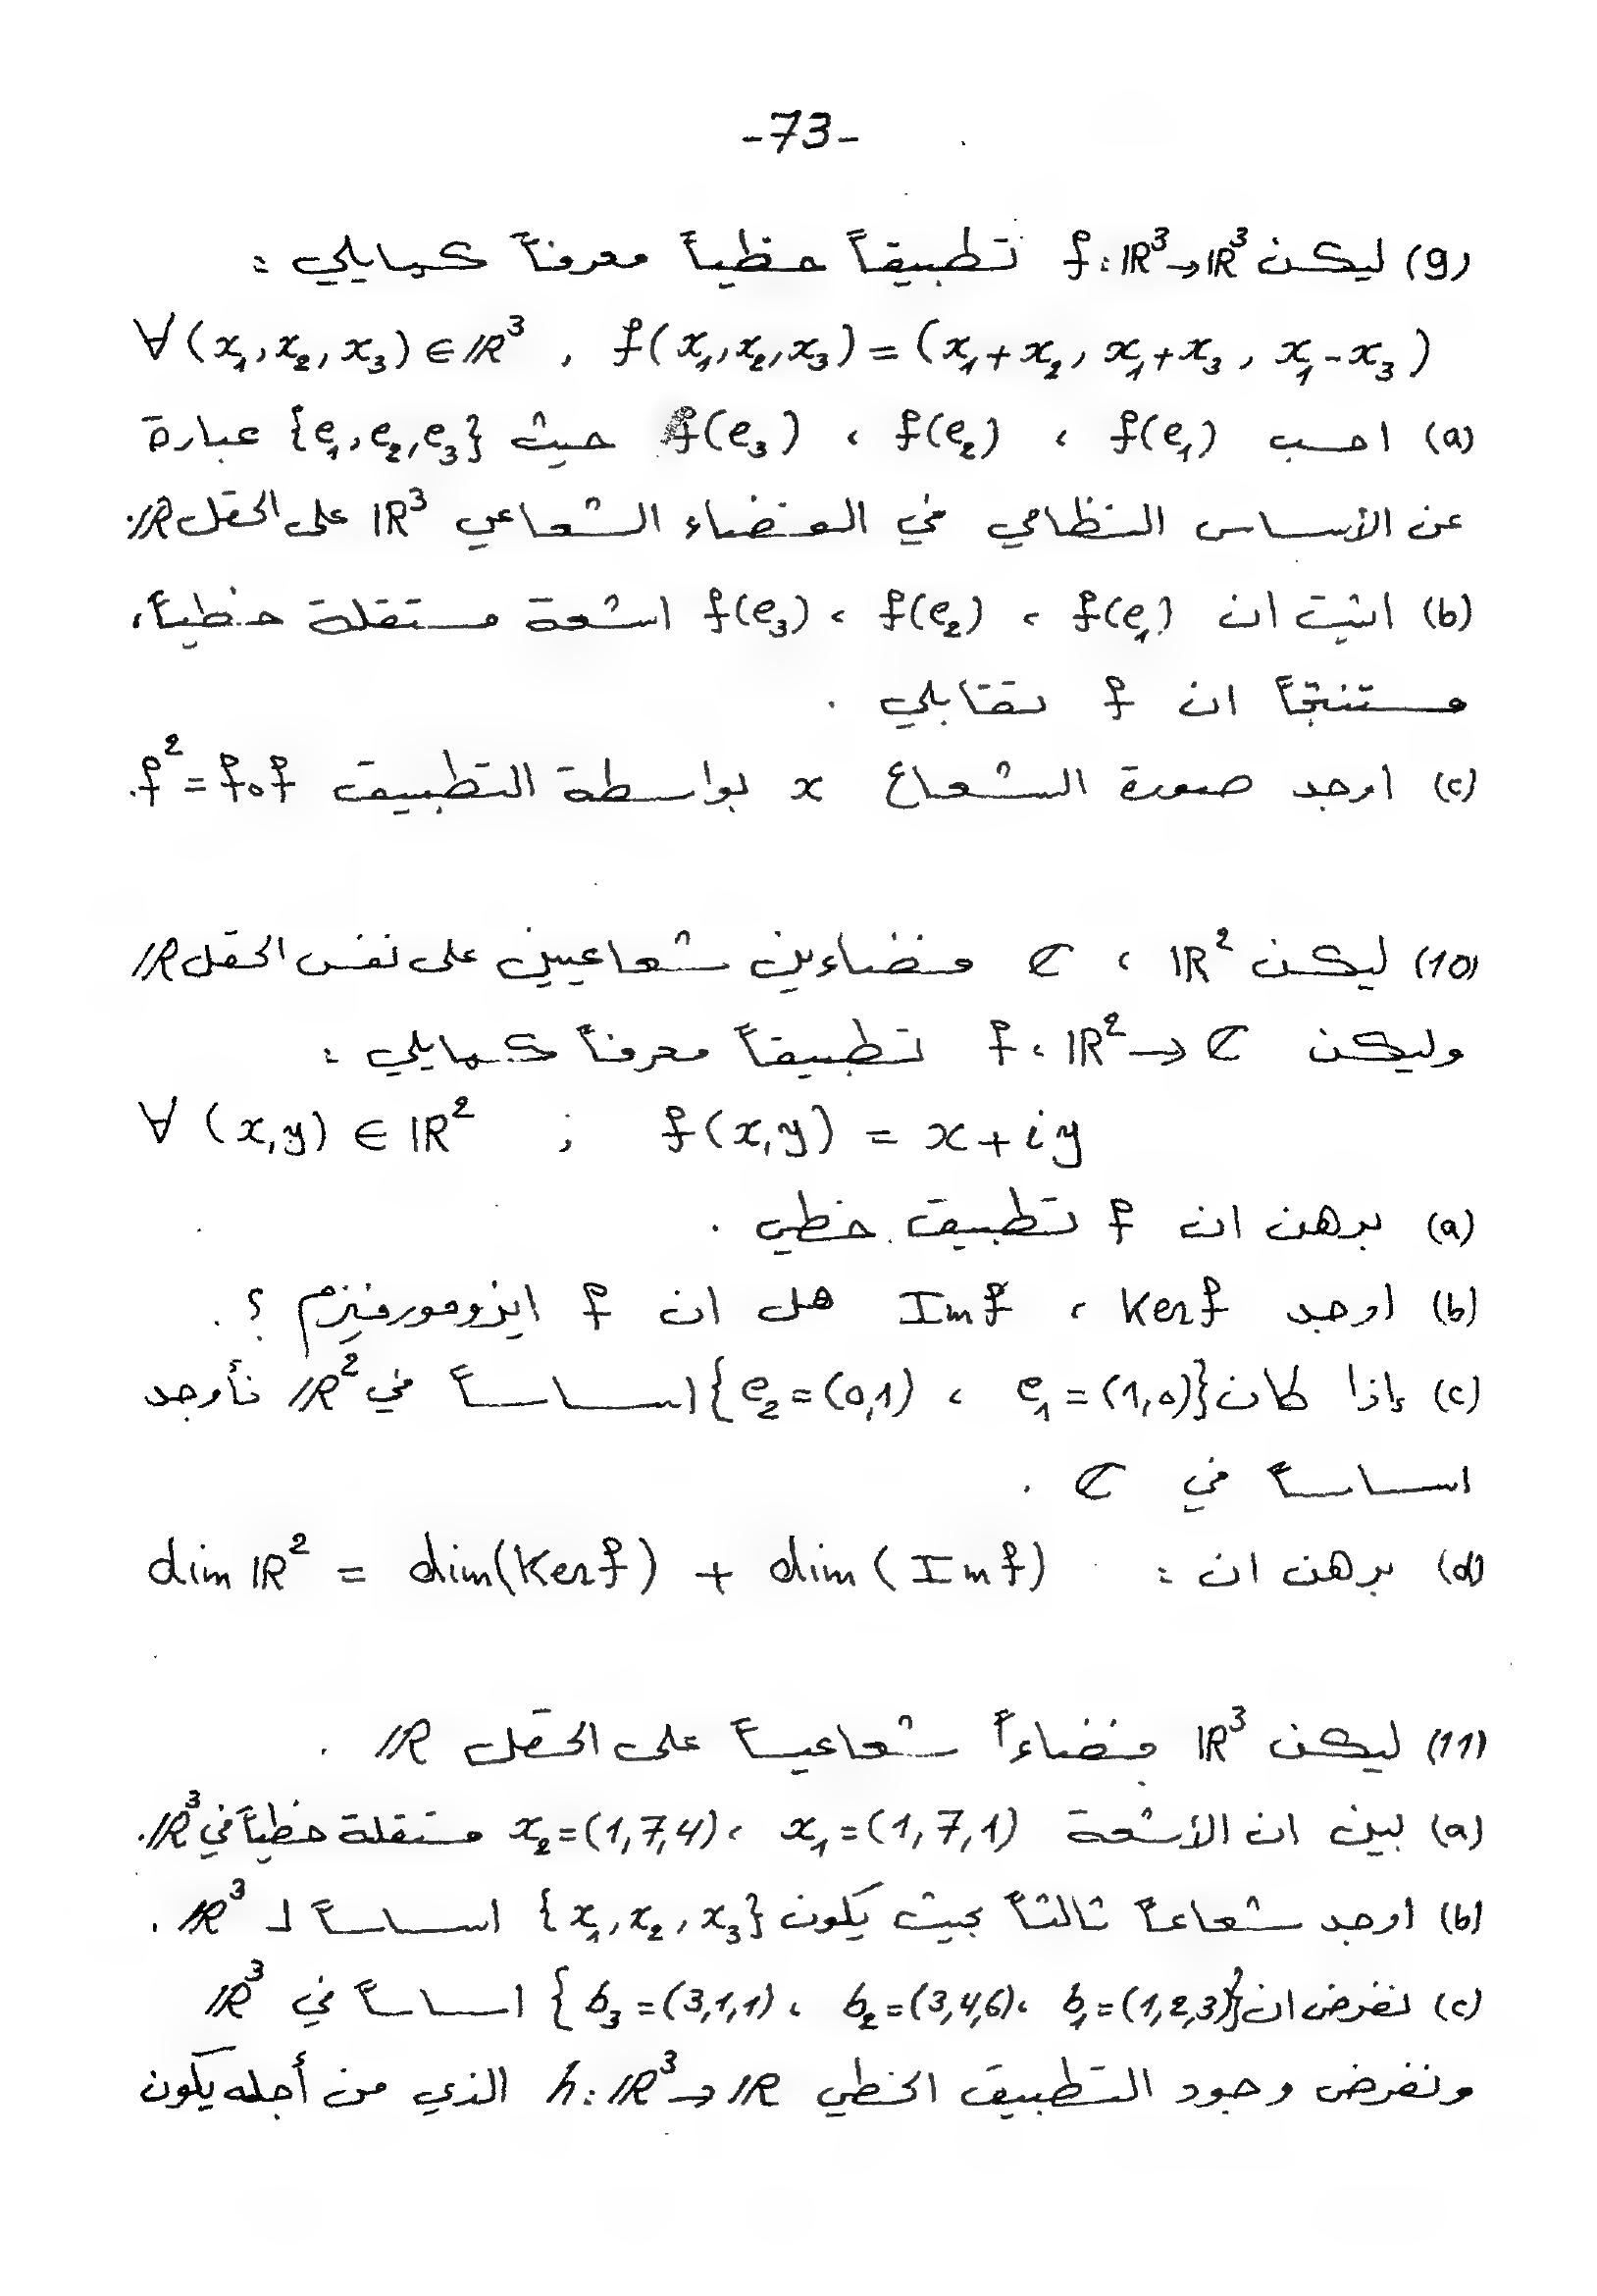 -73-
(9) ليكن f: ℝ³→ℝ³ تطبيقاً خطياً معرفاً كمايلي :
∀(x₁,x₂,x₃)∈ℝ³ , f(x₁,x₂,x₃)=(x₁+x₂, x₁+x₃, x₁-x₃)
(a) احسب f(e₁) ، f(e₂) ، f(e₃) حيث {e₁,e₂,e₃} عبارة
عن الأساس النظامي في الفضاء الشعاعي ℝ³ على الحقل ℝ.
(b) اثبت ان f(e₁) ، f(e₂) ، f(e₃) اشعة مستقلة خطياً،
مستنتجاً ان f تقابلي .
(c) اوجد صورة الشعاع x بواسطة التطبيق f²=f∘f.
(10) ليكن ℝ² ، ℂ فضاءين شعاعيين على نفس الحقل ℝ
وليكن f: ℝ²→ℂ تطبيقاً معرفاً كمايلي :
∀ (x,y) ∈ ℝ² ; f(x,y) = x+iy
(a) برهن ان f تطبيق خطي .
(b) اوجد Kerf ، Imf هل ان f ايزومورفيزم ؟ .
(c) إذا كان {e₁=(1,0) ، e₂=(0,1)} اساساً في ℝ² فأوجد
اساساً في ℂ .
(d) برهن ان : dim ℝ² = dim(Kerf) + dim(Imf)
(11) ليكن ℝ³ فضاءاً شعاعياً على الحقل ℝ .
(a) بين ان الأشعة x₁=(1,7,1) ، x₂=(1,7,4) مستقلة خطياً في ℝ³.
(b) اوجد شعاعاً ثالثاً بحيث يكون {x₁,x₂,x₃} اساساً لـ ℝ³ .
(c) نفرض ان {b₁=(1,2,3) ، b₂=(3,4,6) ، b₃=(3,1,1)} اساساً في ℝ³
ونفرض وجود التطبيق الخطي h: ℝ³→ℝ الذي من أجله يكون